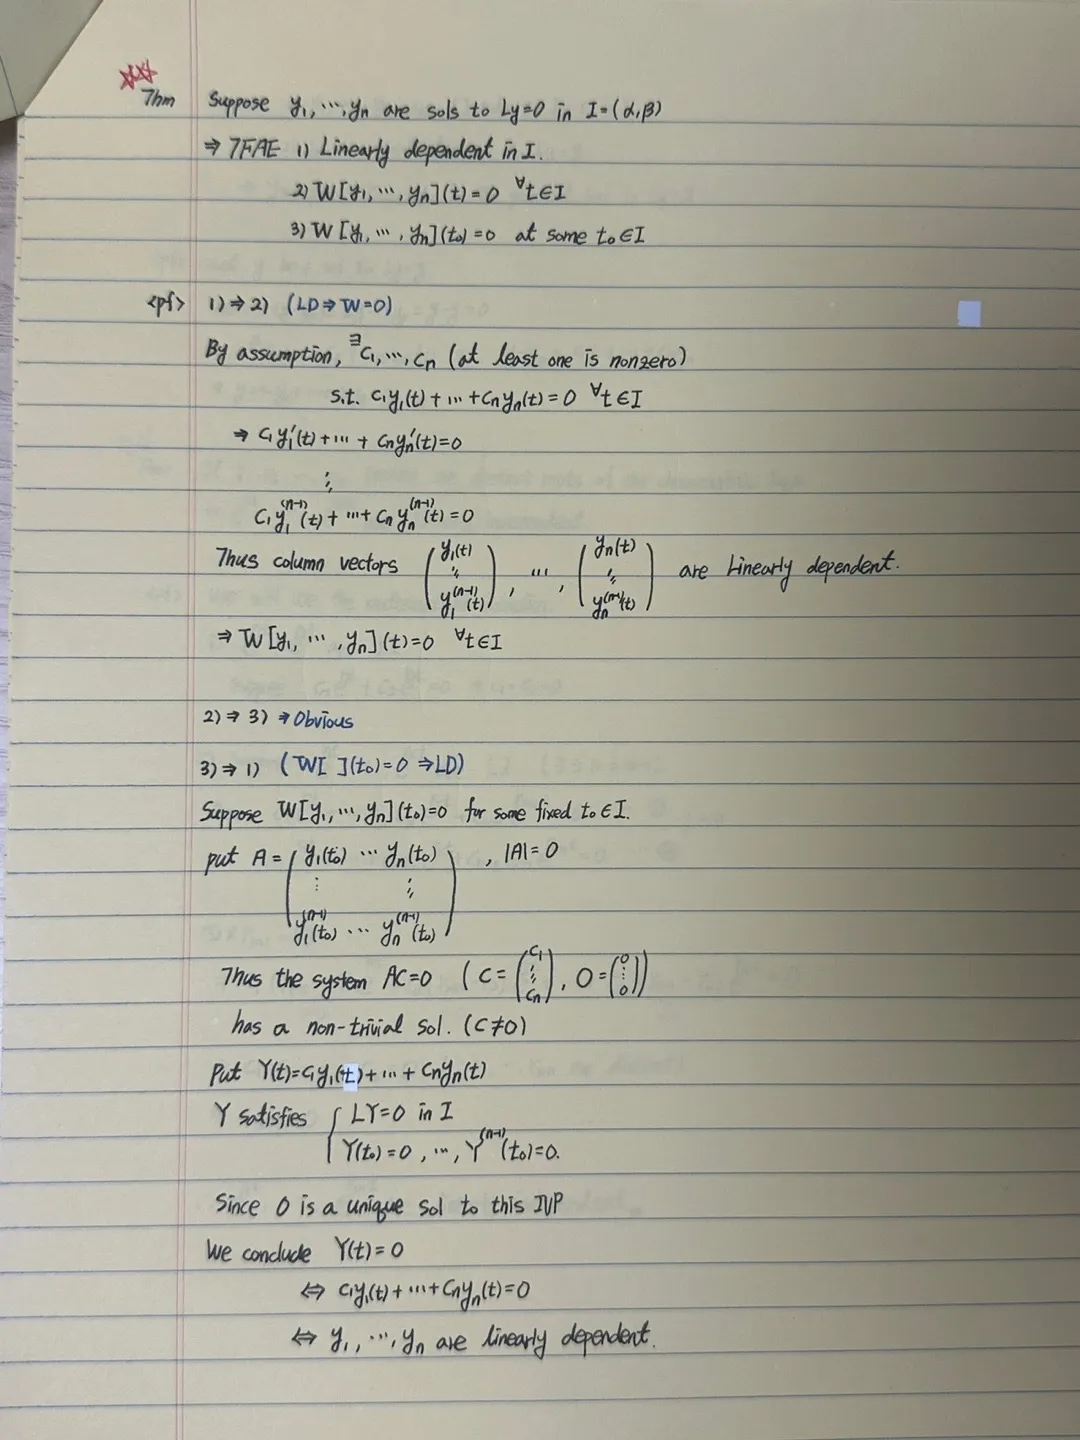 Thm Suppose y₁, ⋯, yₙ are sols to Ly=0 in I=(α,β)
⇒ TFAE 1) Linearly dependent in I.
2) W[y₁, ⋯, yₙ](t)=0 ∀t∈I
3) W[y₁, ⋯, yₙ](t₀)=0 at some t₀∈I
<pf> 1)⇒2) (LD⇒W=0)
By assumption, ∃c₁, ⋯, cₙ (at least one is nonzero)
s.t. c₁y₁(t)+⋯+cₙyₙ(t)=0 ∀t∈I
⇒ c₁y₁′(t)+⋯+cₙyₙ′(t)=0
⋮
c₁y₁⁽ⁿ⁻¹⁾(t)+⋯+cₙyₙ⁽ⁿ⁻¹⁾(t)=0
Thus column vectors (y₁(t) ⋮ y₁⁽ⁿ⁻¹⁾(t)), ⋯, (yₙ(t) ⋮ yₙ⁽ⁿ⁻¹⁾(t)) are Linearly dependent.
⇒ W[y₁, ⋯, yₙ](t)=0 ∀t∈I
2)⇒3) ⇒ Obvious
3)⇒1) (W[ ](t₀)=0 ⇒LD)
Suppose W[y₁, ⋯, yₙ](t₀)=0 for some fixed t₀∈I.
put A= (y₁(t₀) ⋯ yₙ(t₀) , |A|=0
⋮ ⋮
y₁⁽ⁿ⁻¹⁾(t₀) ⋯ yₙ⁽ⁿ⁻¹⁾(t₀))
Thus the system AC=0 (C=(c₁ ⋮ cₙ), O=(0 ⋮ 0))
has a non-trivial sol. (C≠0)
Put Y(t)=c₁y₁(t)+⋯+cₙyₙ(t)
Y satisfies { LY=0 in I
Y(t₀)=0, ⋯, Y⁽ⁿ⁻¹⁾(t₀)=0.
Since 0 is a unique sol to this IVP
We conclude Y(t)=0
⇔ c₁y₁(t)+⋯+cₙyₙ(t)=0
⇔ y₁, ⋯, yₙ are linearly dependent.